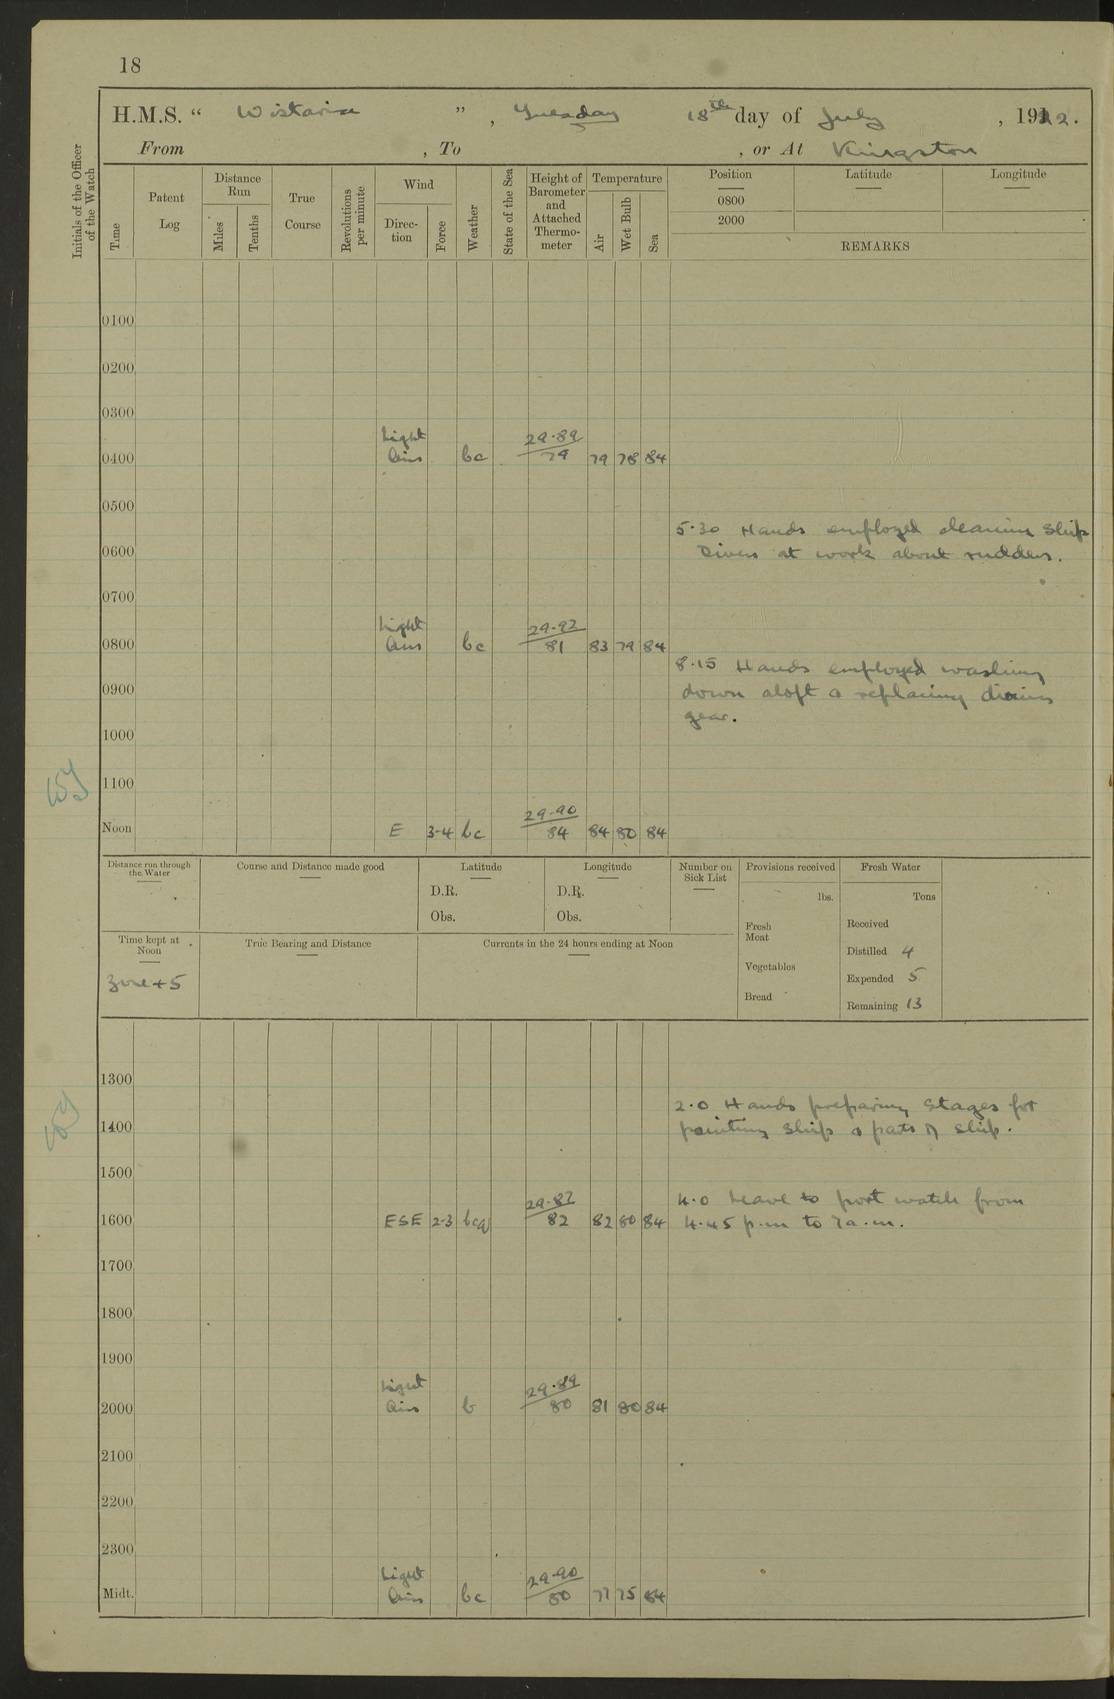 18
H.M.S. “ Wistaria ” , Tuesday 18th day of July , 1922.
From , To , or At Kingston
Initials of the Officer of the Watch
Time
Patent Log
Distance Run
Miles
Tenths
True Course
Revolutions per minute
Wind
Direc-tion
Force
Weather
State of the Sea
Height of Barometer and Attached Thermo-meter
Temperature
Air
Wet Bulb
Sea
Position Latitude Longitude
0800
2000
REMARKS
0100
0200
0300
Light 29.89
0400 Airs bc 79 79 78 84
0500
5.30 Hands employed cleaning ship
0600 Divers at work about rudders.
0700
Light 29.92
0800 Airs bc 81 83 79 84
8.15 Hands employed washing
0900 down aloft & replacing diving
gear.
1000
1100
29.90
Noon E 3-4 bc 84 84 80 84
Distance run through the Water
Course and Distance made good
Latitude
D.R.
Obs.
Longitude
D.R.
Obs.
Number on Sick List
Provisions received
lbs.
Fresh Meat
Vegetables
Bread
Fresh Water
Tons
Received
Distilled 4
Expended 5
Remaining 13
Time kept at Noon
Zone +5
True Bearing and Distance
Currents in the 24 hours ending at Noon
1300
2.0 Hands preparing stages for
1400 painting ship & parts of ship.
1500
29.87 4.0 Leave to port watch from
1600 ESE 2-3 bcq 82 82 80 84 4.45 p.m to 7a.m.
1700
1800
1900
Light 29.89
2000 Airs b 80 81 80 84
2100
2200
2300
Light 29.90
Midt. Airs bc 80 77 75 84